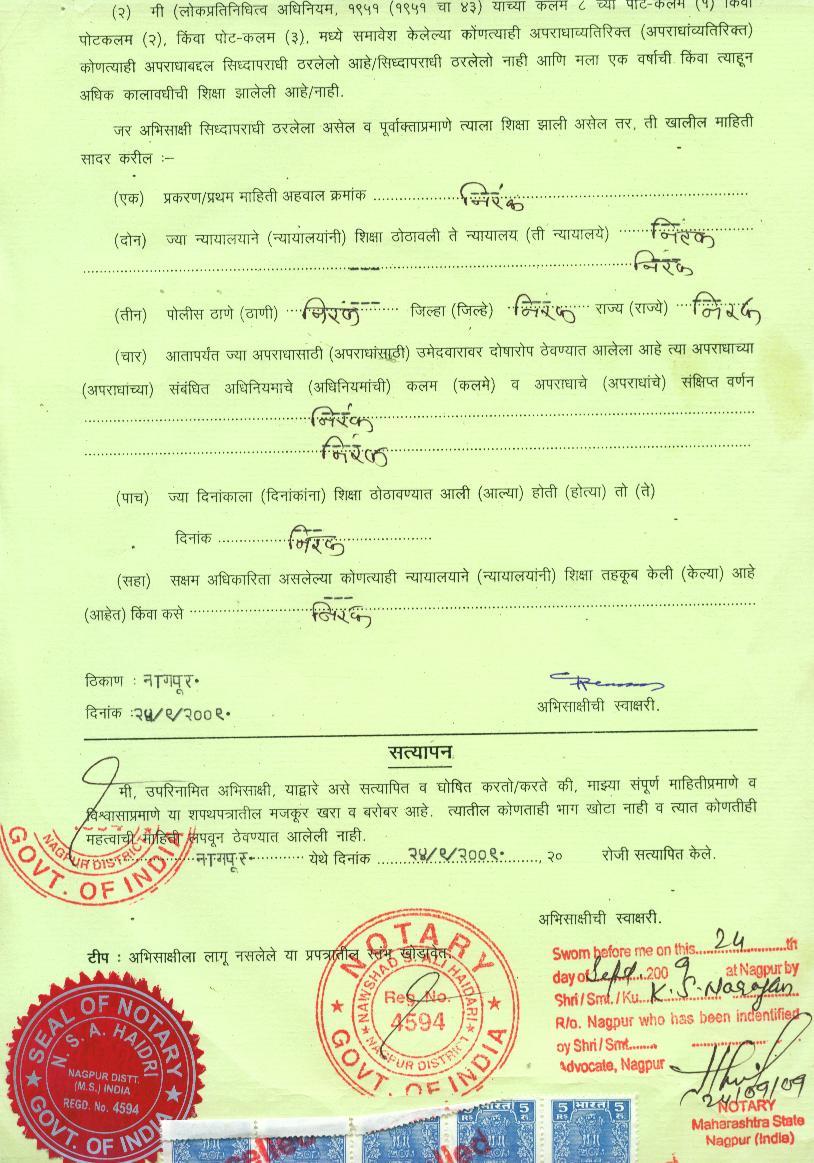 (२) मी (लोकप्रतिनिधित्व अधिनियम, १९५१ (१९५१ चा ४३) याच्या कलम ८ च्या पोट-कलम (१) किंवा
पोटकलम (२), किंवा पोट-कलम (३), मध्ये समावेश केलेल्या कोंणत्याही अपराधाव्यतिरिक्त (अपराधांव्यतिरिक्त)
कोणत्याही अपराधाबद्दल सिध्दापराधी ठरलेलो आहे/सिध्दापराधी ठरलेलो नाही आणि मला एक वर्षाची किंवा त्याहून
अधिक कालावधीची शिक्षा झालेली आहे/नाही.
जर अभिसाक्षी सिध्दापराधी ठरलेला असेल व पूर्वाक्ताप्रमाणे त्याला शिक्षा झाली असेल तर, ती खालील माहिती
सादर करील :–
(एक) प्रकरण/प्रथम माहिती अहवाल क्रमांक निरंक
(दोन) ज्या न्यायालयाने (न्यायालयांनी) शिक्षा ठोठावली ते न्यायालय (ती न्यायालये) निरंक
निरंक
(तीन) पोलीस ठाणे (ठाणी) निरंक जिल्हा (जिल्हे) निरंक राज्य (राज्ये) निरंक
(चार) आतापर्यंत ज्या अपराधासाठी (अपराधांसाठी) उमेदवारावर दोषारोप ठेवण्यात आलेला आहे त्या अपराधाच्या
(अपराधांच्या) संबंधित अधिनियमाचे (अधिनियमांची) कलम (कलमे) व अपराधाचे (अपराधांचे) संक्षिप्त वर्णन
निरंक
निरंक
(पाच) ज्या दिनांकाला (दिनांकांना) शिक्षा ठोठावण्यात आली (आल्या) होती (होत्या) तो (ते)
दिनांक निरंक
(सहा) सक्षम अधिकारिता असलेल्या कोणत्याही न्यायालयाने (न्यायालयांनी) शिक्षा तहकूब केली (केल्या) आहे
(आहेत) किंवा कसे निरंक
ठिकाण : नागपूर.
दिनांक :२४/९/२००९.
अभिसाक्षीची स्वाक्षरी.
सत्यापन
मी, उपरिनामित अभिसाक्षी, याद्वारे असे सत्यापित व घोषित करतो/करते की, माझ्या संपूर्ण माहितीप्रमाणे व
विश्वासाप्रमाणे या शपथपत्रातील मजकूर खरा व बरोबर आहे. त्यातील कोणताही भाग खोटा नाही व त्यात कोणतीही
महत्वाची माहिती लपवून ठेवण्यात आलेली नाही.
नागपूर. येथे दिनांक २४/९/२००९., २० रोजी सत्यापित केले.
NAGPUR DISTRICT
GOVT. OF INDIA
अभिसाक्षीची स्वाक्षरी.
टीप : अभिसाक्षीला लागू नसलेले या प्रपत्रातील स्तंभ खोडावेत.
NOTARY
NAWSHAD ALI HAIDARI
Reg. No.
4594
NAGPUR DISTRICT
GOVT. OF INDIA
Sworn before me on this 24 th
day of Sept 2009 at Nagpur by
Shri / Smt. / Ku. K. S. Narayan
R/o. Nagpur who has been indentified
by Shri / Smt.
Advocate, Nagpur
24/09/09
NOTARY
Maharashtra State
Nagpur (India)
SEAL OF NOTARY
N. S. A. HAIDRI
NAGPUR DISTT.
(M.S.) INDIA
REGD. No. 4594
GOVT. OF INDIA
भारत 5
5 भारत
RS